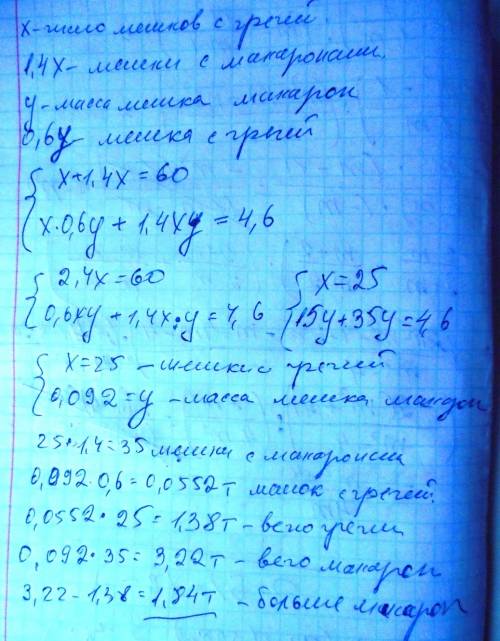 x-число мешков с гречей.
1,4x- мешки с макаронами.
y-масса мешка макарон
0,6y мешка с гречей
x+1,4x=60
x·0,6y+1,4xy=4,6
2,4x=60 x=25
0,6xy+1,4x·y=4,6 15y+35y=4,6
x=25 -мешки с гречей
0,092=y -масса мешка макарон
25·1,4=35 мешки с макаронами
0,092·0,6=0,0552т мешок с гречей.
0,0552·25=1,38т-всего гречи
0,092·35=3,22т-всего макарон
3,22-1,38=1,84т -больше макарон